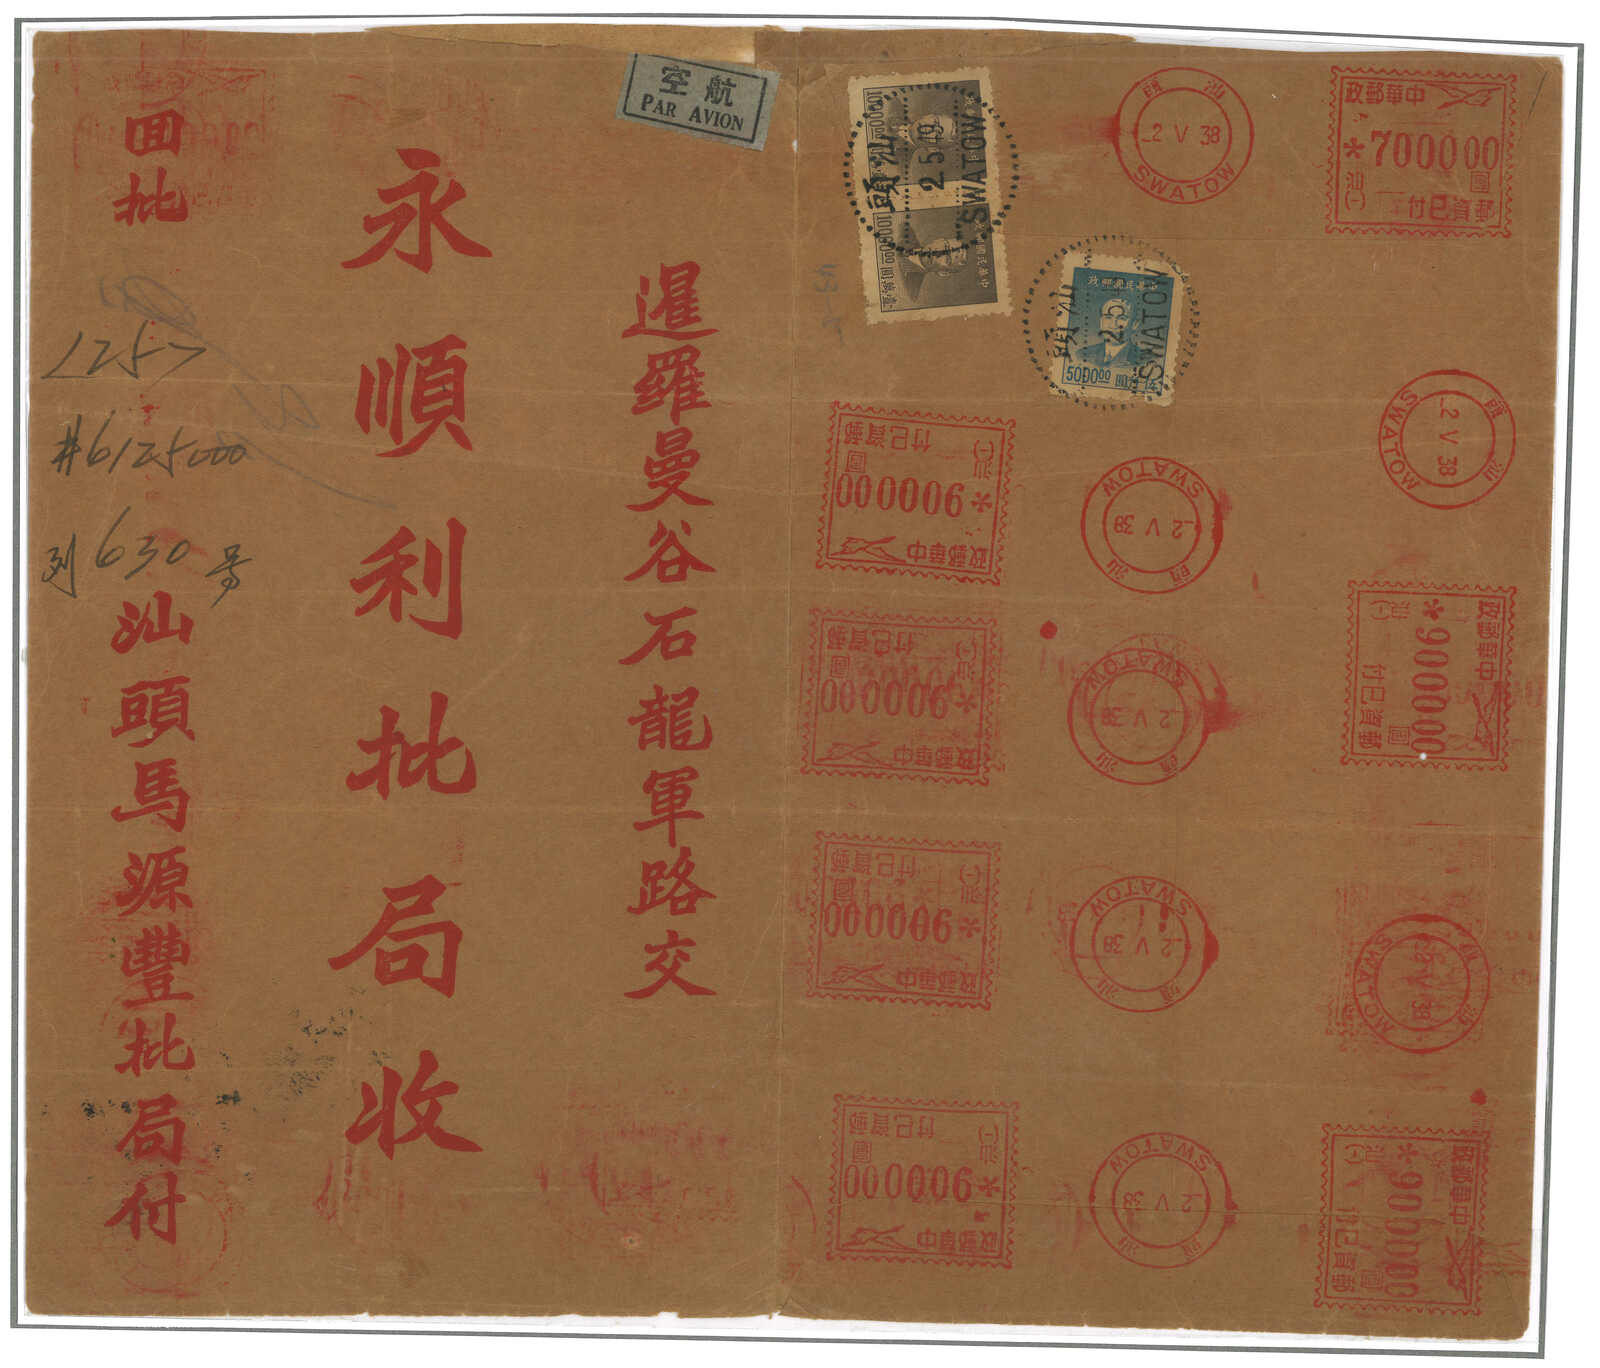 暹羅曼谷石龍軍路交
永順利批局收
回批
汕頭馬源豐批局付
1257
#6125000
列630号
航空
PAR AVION
汕頭
2.5.49
SWATOW
10000000
中華民國郵政
汕頭
2.5.
SWATOW
中華民國郵政
500000
汕頭
-2 V 38
SWATOW
中華郵政
*700000
圓
汕(一)
郵資已付
汕頭
-2 V 38
SWATOW
中華郵政
*900000
圓
汕(一)
郵資已付
汕頭
-2 V 38
SWATOW
中華郵政
*900000
圓
汕(一)
郵資已付
汕頭
-2 V 38
SWATOW
中華郵政
*900000
圓
汕(一)
郵資已付
汕頭
-2 V 38
SWATOW
中華郵政
*900000
圓
汕(一)
郵資已付
汕頭
-2 V 38
SWATOW
中華郵政
*900000
圓
汕(一)
郵資已付
汕頭
-2 V 38
SWATOW
中華郵政
*900000
圓
汕(一)
郵資已付